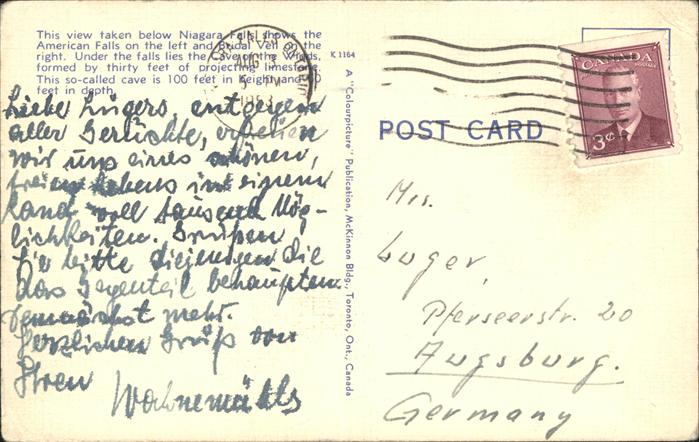 This view taken below Niagara Falls shows the
American Falls on the left and Bridal Veil on the
right. Under the falls lies the Cave of the Winds,
formed by thirty feet of projecting limestone.
This so-called cave is 100 feet in height and 60
feet in depth.
K 1164
AUG
PM
Liebe Lugers, entgegen
aller Gerüchte, erfreuen
wir uns eines schönen,
freien Lebens im eigenen
Land voll tausend Mög-
lichkeiten. Grüßen
Sie bitte diejenigen die
das Gegenteil behaupten
demnächst mehr.
Herzlichen Gruß von
Ihren
A "Colourpicture" Publication, McKinnon Bldg., Toronto, Ont., Canada
POST CARD
CANADA
POSTAGE
3¢
Mrs.
Luger,
Pferseerstr. 20
Augsburg.
Germany